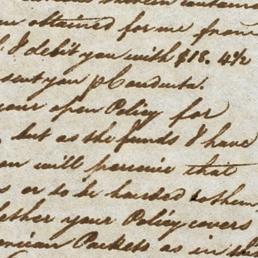 you obtained for me from
I debit you with $18. 4½
sent you p Conducta.
your open Policy for
but as the funds I have
you will perceive that
or to be handed to them
whether your Policy covers
American Packets as in this